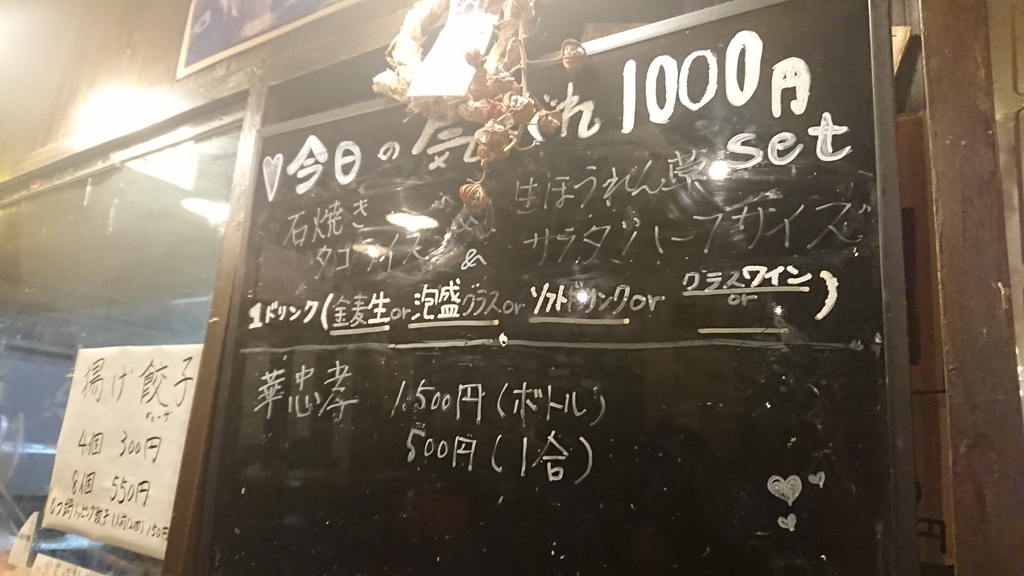 ♡今日の気 れ 1000円
set
石焼き
タコライス
&
生ほうれん草
サラダハーフサイズ
1ドリンク(金麦生or泡盛グラスorソフトドリンクor グラスワイン
or )
華忠孝 1,500円(ボトル)
500円(1合)
揚げ餃子
4個 300円
8個 550円